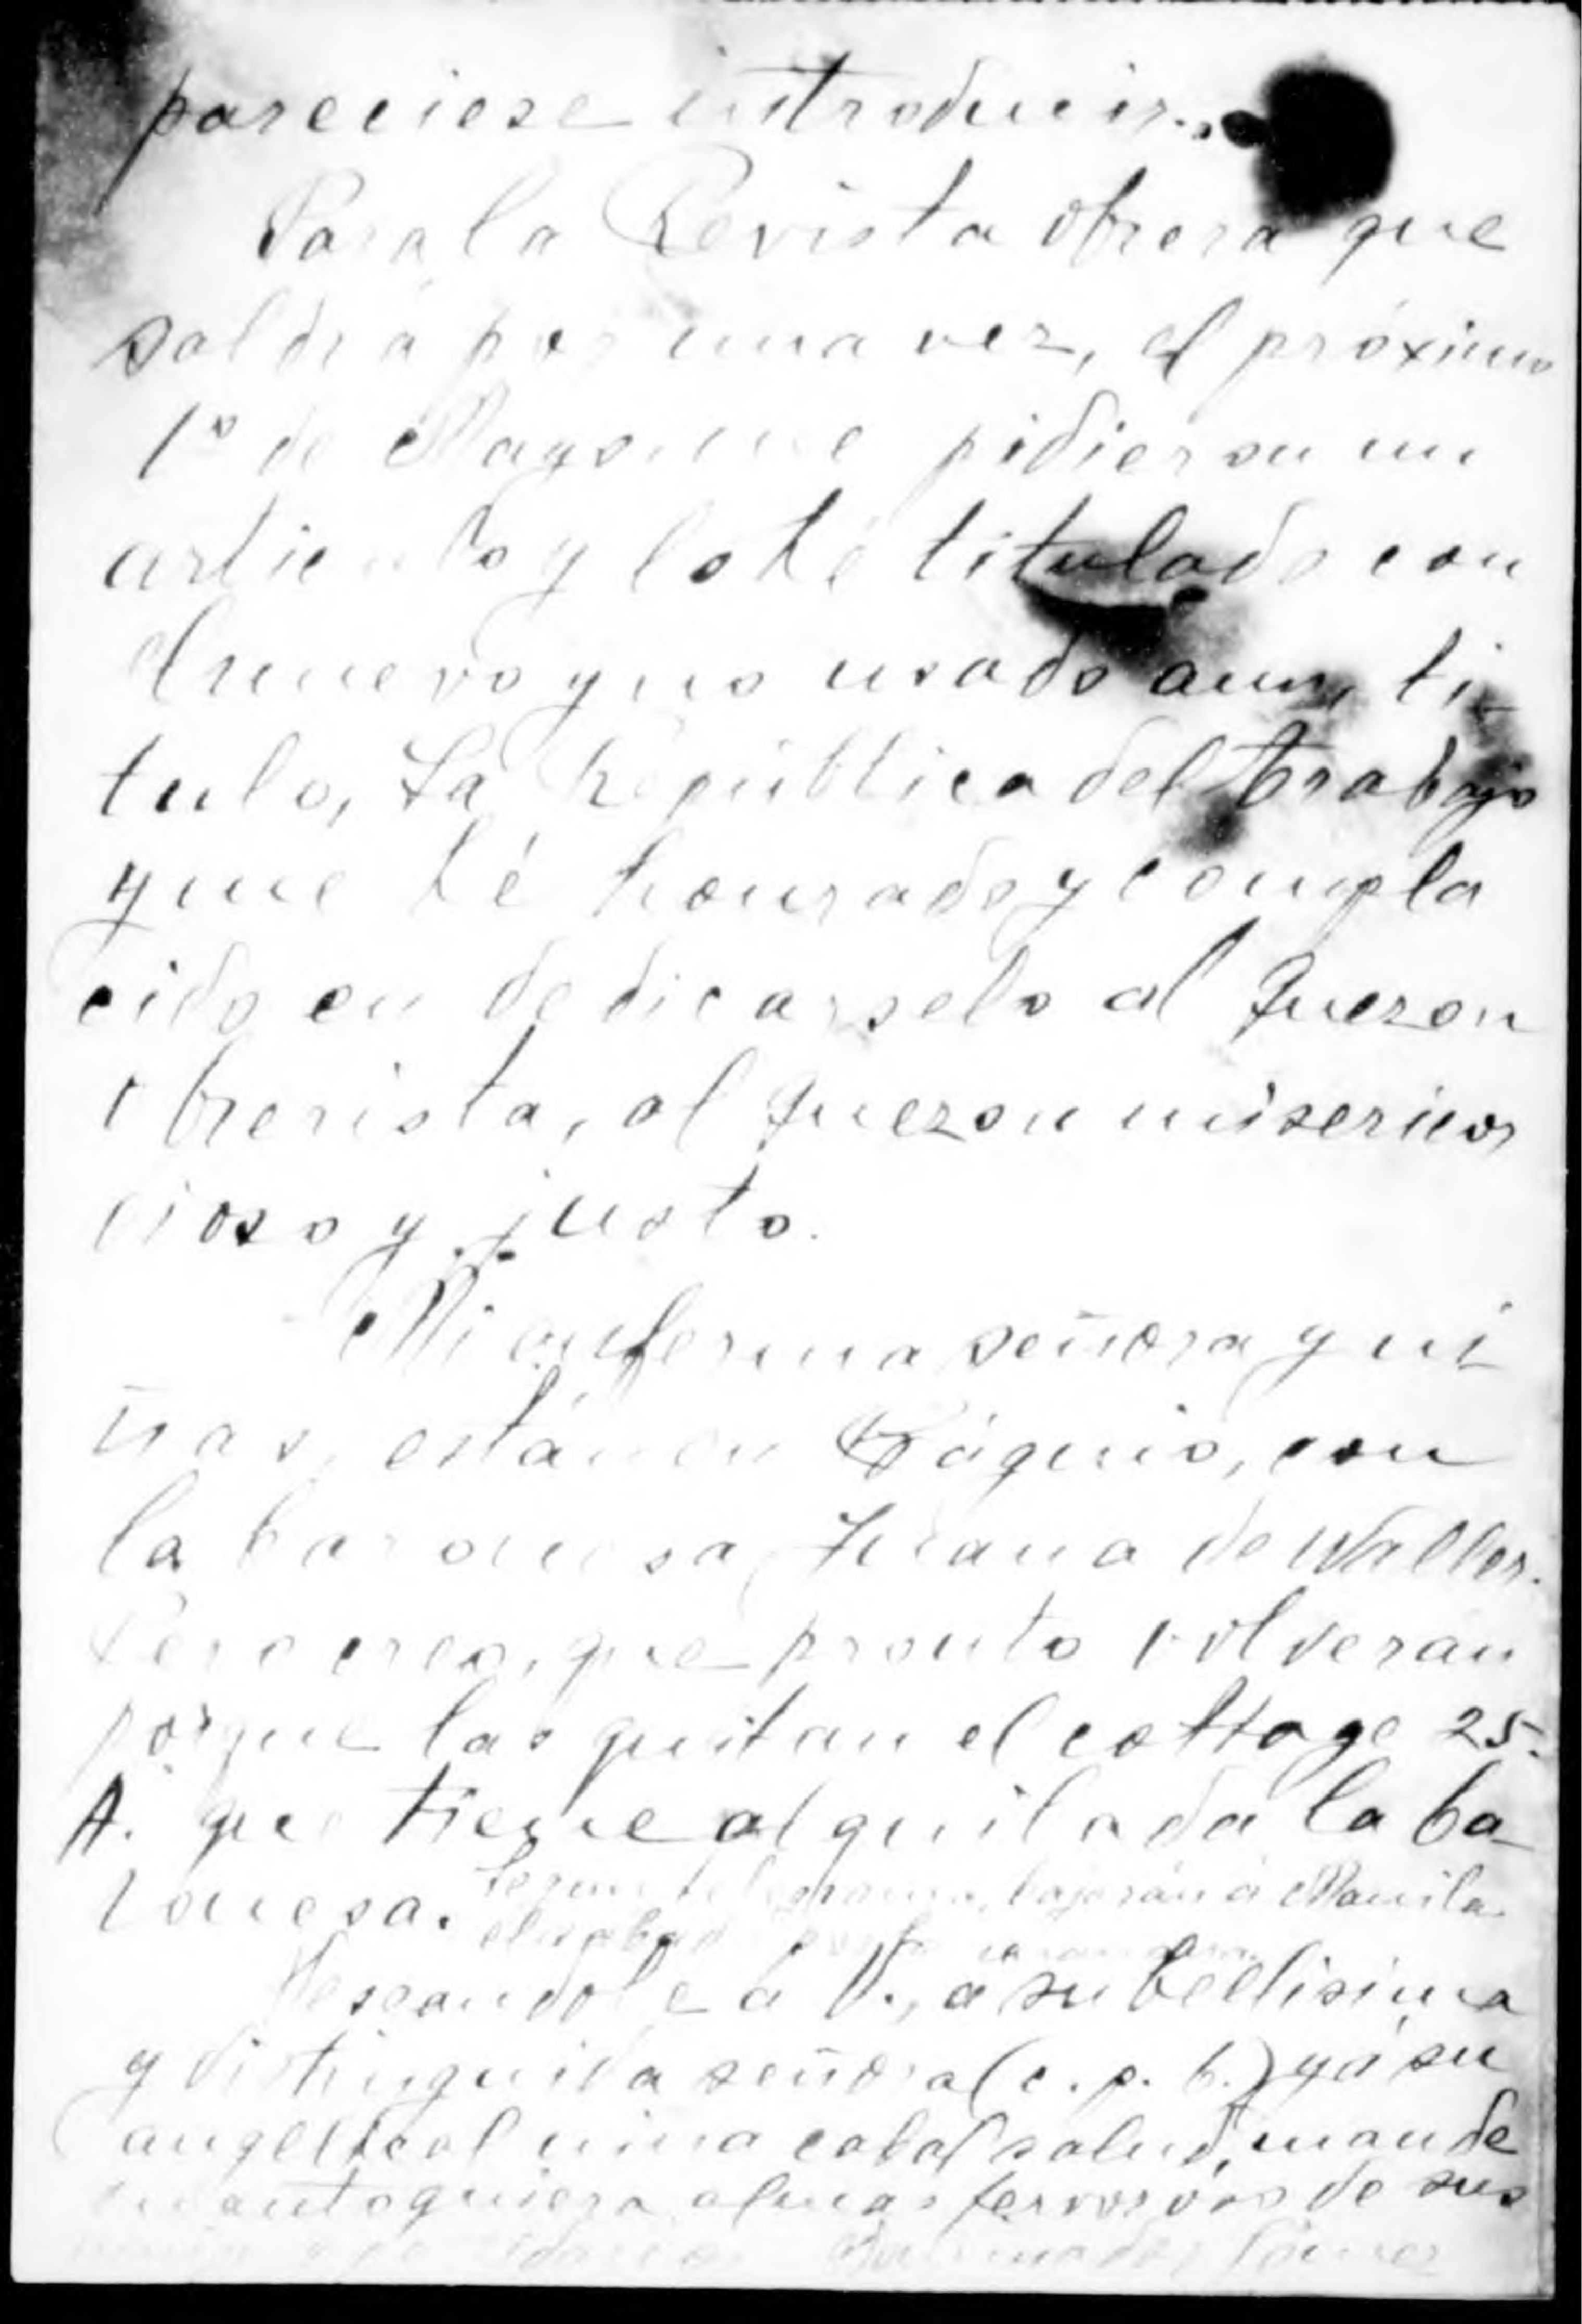 pareciese introducir..
Para la Revista obrera que
saldrá por una vez, el próximo
1º de Mayo me pidieron un
articulo y lo hé titulado con
el nuevo y no usado aun, ti-
tulo, La República del trabajo
que hé honrado y compla
cido en dedicarselo al Quezon
obrerista, al Quezon misericor
cioso y justo.
Mi enferma señora y ni
ñas, están en Báguio, con
la baronesa Juana de Walker.
Pero creo, que pronto volverán
porque las quitan el cottage 25.
A. que tiene alquilada la ba-
ronesa. Segun telegrama, bajarán á Manila
el sabado
Deseandole á V., á su bellisima
y distinguida señora (c. p. b.) y á su
angelical nina cabal salud, mande
cuanto quiera al mas fervoroso de sus